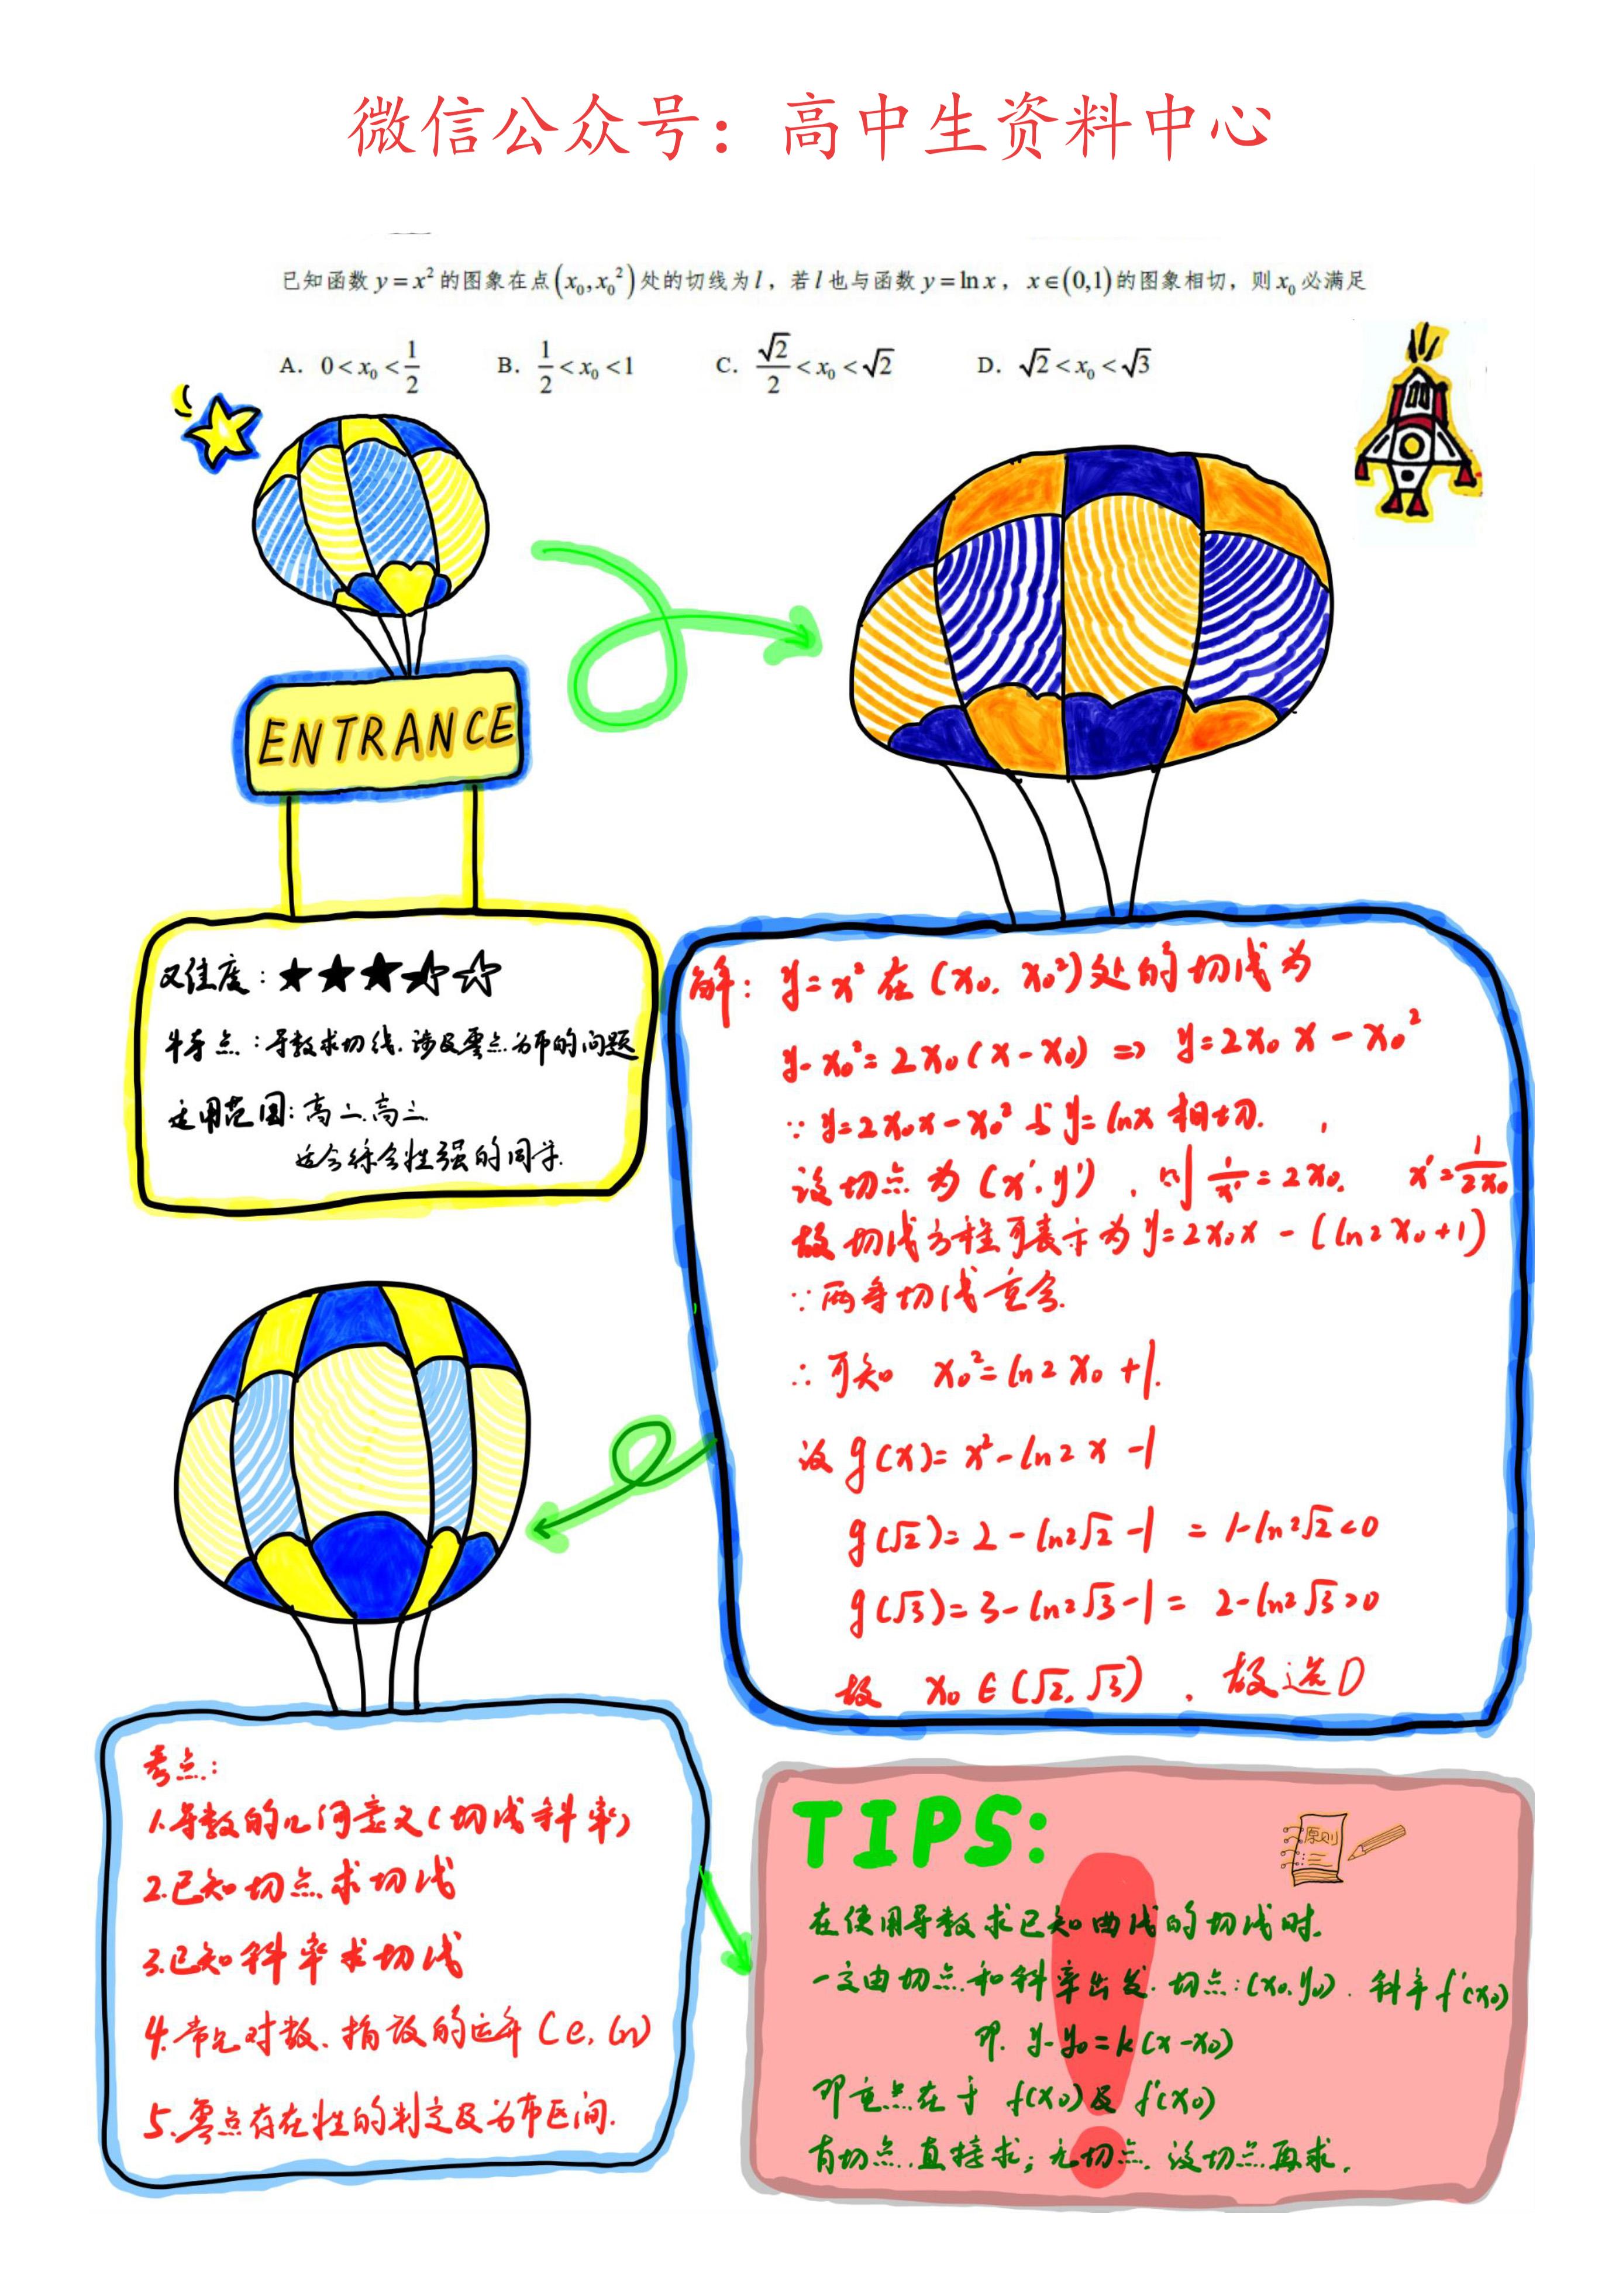 微信公众号：高中生资料中心
已知函数 y = x² 的图象在点 (x₀, x₀²) 处的切线为 l，若 l 也与函数 y = ln x，x ∈ (0,1) 的图象相切，则 x₀ 必满足
A. 0 < x₀ < 1/2 B. 1/2 < x₀ < 1 C. √2/2 < x₀ < √2 D. √2 < x₀ < √3
ENTRANCE
难度：★★★
特点：导数求切线、涉及零点分布的问题
适用范围：高二、高三
适合综合性强的同学.
解：y = x² 在 (x₀, x₀²) 处的切线为
y - x₀² = 2x₀(x - x₀) ⇒ y = 2x₀x - x₀²
∵ y = 2x₀x - x₀² 与 y = ln x 相切.
设切点为 (x', y')，则 1/x' = 2x₀, x' = 1/2x₀
故切线方程可表示为 y = 2x₀x - (ln2x₀ + 1)
∵ 两条切线重合.
∴ 可知 x₀² = ln2x₀ + 1.
设 g(x) = x² - ln2x - 1
g(√2) = 2 - ln2√2 - 1 = 1 - ln2√2 < 0
g(√3) = 3 - ln2√3 - 1 = 2 - ln2√3 > 0
故 x₀ ∈ (√2, √3)，故选D
考点：
1.导数的几何意义(切线斜率)
2.已知切点求切线
3.已知斜率求切线
4.常见对数、指数的运算(e, ln)
5.零点存在性的判定及分布区间.
TIPS:
原则
在使用导数求已知曲线的切线时.
一定由切点和斜率出发.切点：(x₀, y₀).斜率 f'(x₀)
即. y - y₀ = k(x - x₀)
即重点在于 f(x₀) 及 f'(x₀)
有切点.直接求；无切点.设切点再求.